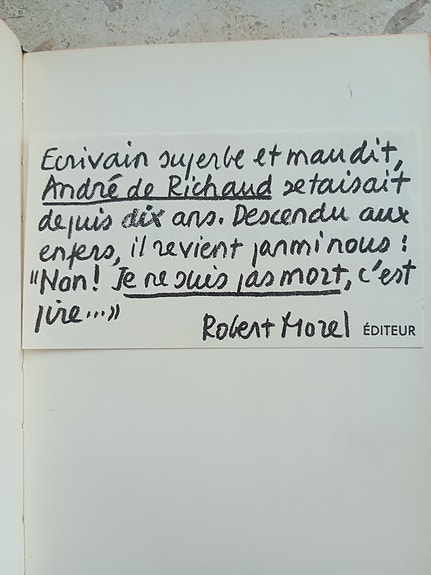 Ecrivain superbe et maudit,
André de Richaud se taisait
depuis dix ans. Descendu aux
enfers, il revient parmi nous :
"Non! Je ne suis pas mort, c'est
pire..."
Robert Morel ÉDITEUR